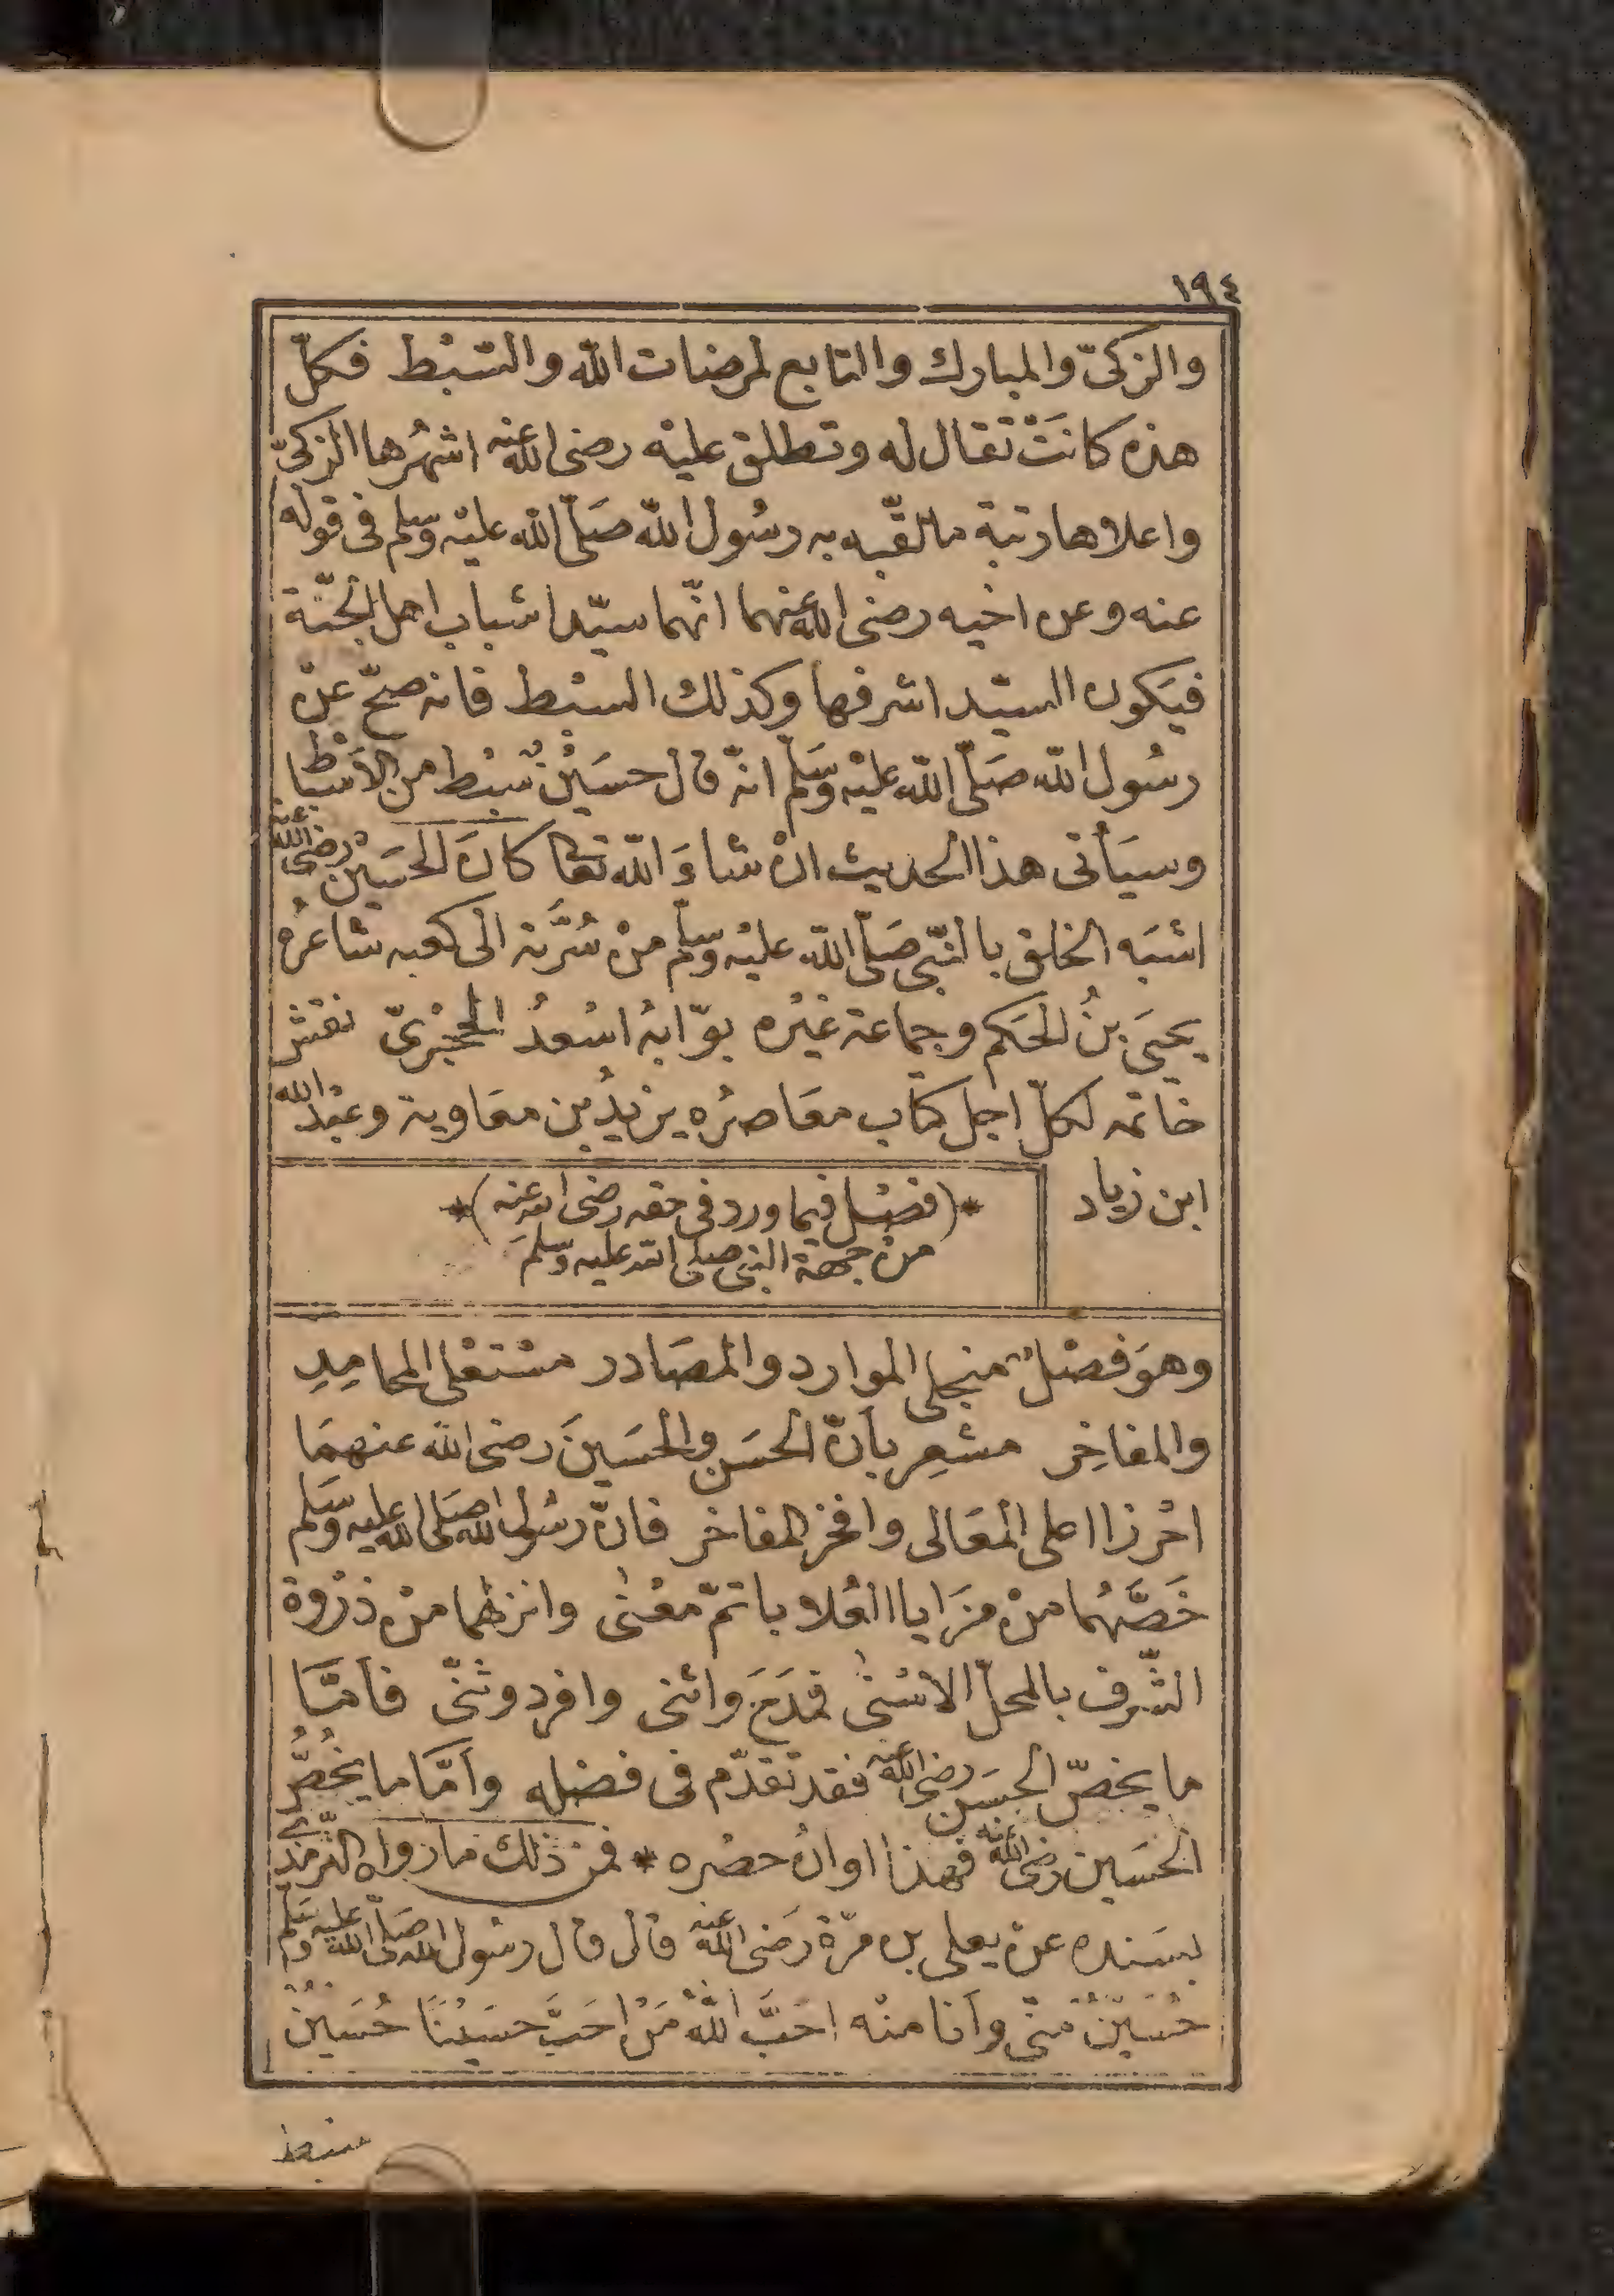 ١٩٤
والزكىّ والمبارك والتابع لمرضات الله والسّبْط فكلّ
هذه كانَتْ تقال له وتطلق عليْه رضى الله عنه اشهُرها الزكىّ
واعلاها رتبة مالقّبه به رسُول الله صَلّى الله عليْه وسلم فى قوله
عنه وعن اخيه رضى الله عنهما انّهما سيّدا شباب اهل الجنّة
فيَكون السيّد اشرفها وكذلك السبْط فانه صحّ عنْ
رسُول الله صَلّى الله عليْه وَسَلّم انّه قال حسَيْنٌ سبْط من الاَسْباط
وسيَأتى هذا الحديث انْ شاءَ الله تعالى كانَ الحسَيْن رضى الله عنه
اشبَه الخلق بالنّبى صَلّى الله عليْه وسلّم منْ سُرَّته الى كعبه شاعرُه
يحيَى بنُ الحَكم وجماعة غيْره بوّابهُ اسْعدُ الهجْرىّ نقش
خاتمه لكلّ اجل كتاب معَاصرُه يزيدُ بن معَاوية وعبْد الله
ابن زياد
*(فصْل فيما ورد فى حقه رضى الله عنه)*
منْ جهة النبى صلى الله عليه وسلمَ
وهوَ فصْلٌ منجلى الموارد والمصَادر مسْتعْلى المحامِدِ
والمفاخِر مشعِر بأنّ الحسَن والحسَينَ رضى الله عنهمَا
احْرزا اعلى المعَالى وافخر المفاخر فانّ رسُول الله صَلى الله عليه وسَلم
خَصَّهُما منْ مزَايا العُلا باتمّ معْنى وانزلهُما منْ ذرْوة
الشّرف بالمحلّ الاسْنى فمدَحَ واثنى وافرد وثنّى فأمّا
ما يخصّ الحسَن رضى الله عنه فقد تقدّم فى فضله وأمّا ما يخُصُّ
الحسَين رضى الله عنه فهذا اوانُ حصْره * فمنْ ذلك ما رواه الترّمذى
بسَنده عنْ يعلى بن مرّة رَضى الله عنه قال قال رسُول الله صَلّى الله عليه وسَلّم
حُسَيْنٌ منّى وأنا منْه احَبَّ اللهُ مَنْ احَبَّ حسَيْنًا حُسَيْنٌ
سبط